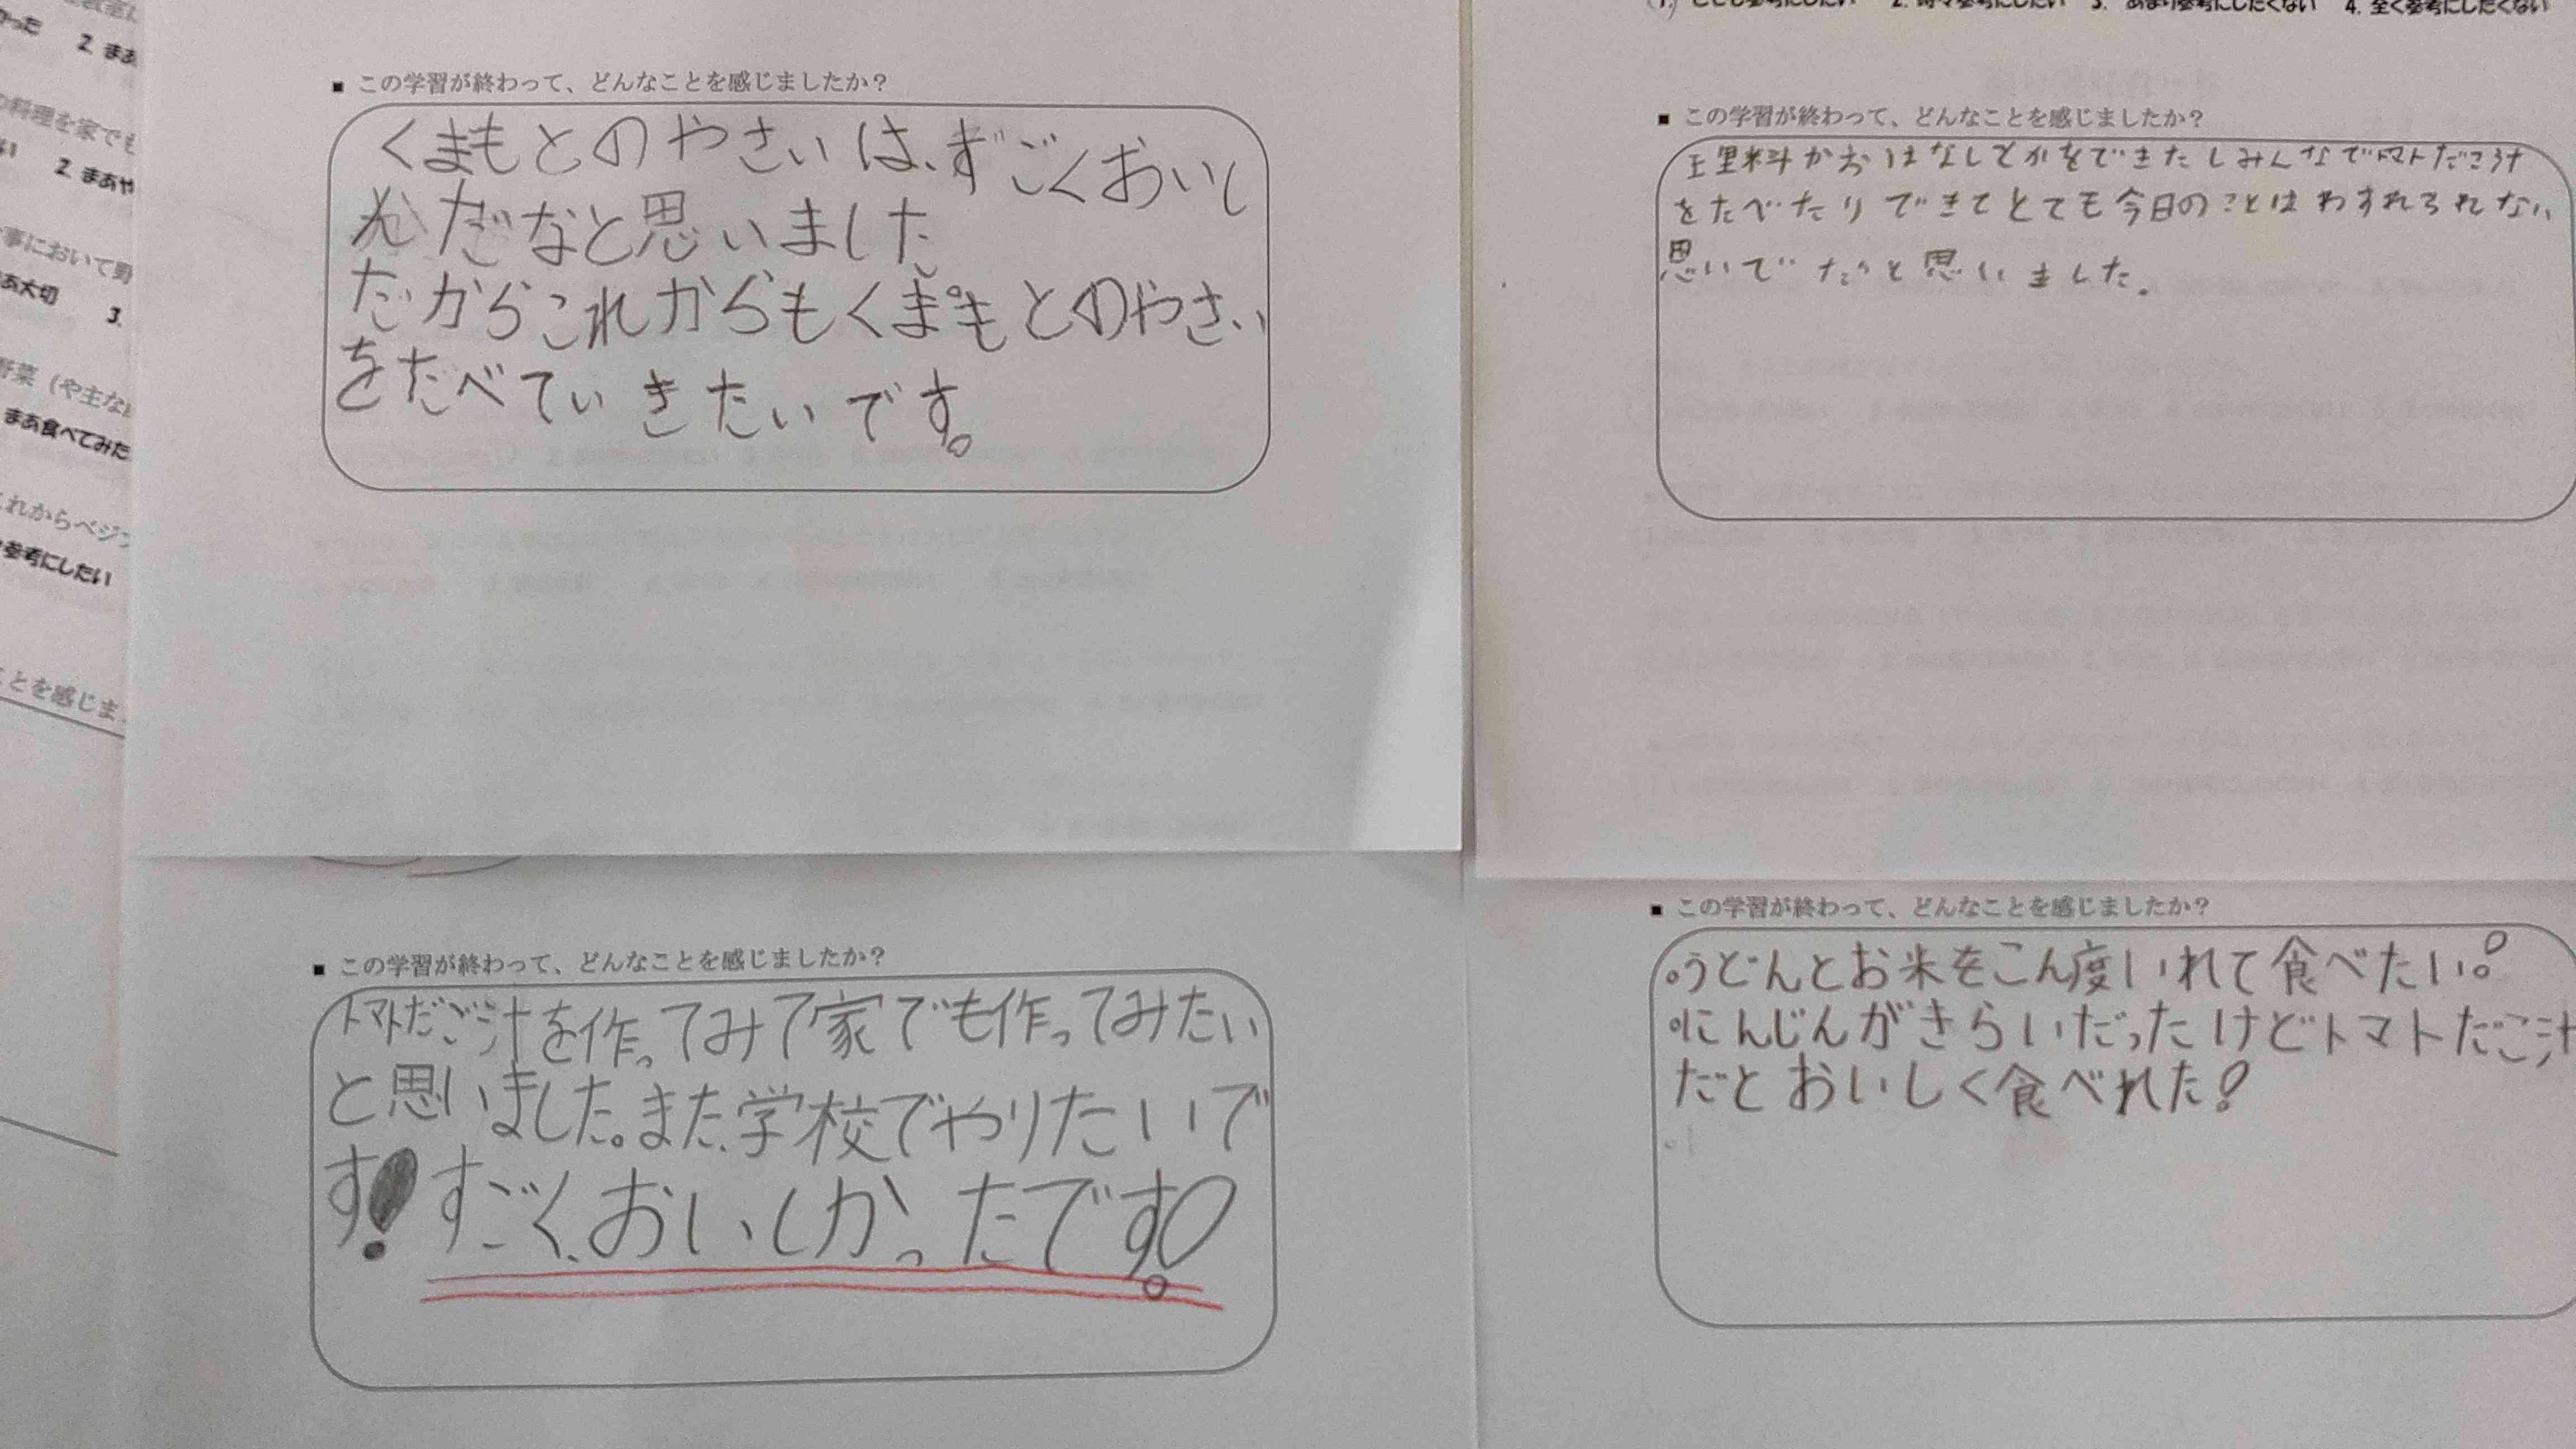 かった 2. まあ
の料理を家でも
2. まあや
事において野
あ大切 3.
野菜（や主な
まあ食べてみた
これからベジ
参考にしたい
ことを感じま
■ この学習が終わって、どんなことを感じましたか？
くまもとのやさいは、すごくおいし
んだなと思いました
だからこれからもくまもとのやさい
をたべていきたいです。
1. とても参考にしたい 2. 時々参考にしたい 3. あまり参考にしたくない 4. 全く参考にしたくない
■ この学習が終わって、どんなことを感じましたか？
理料かおはなしとかをできたしみんなでトマトだこ汁
をたべたりできてとても今日のことはわすれられない
思いでだと思いました。
■ この学習が終わって、どんなことを感じましたか？
トマトだご汁を作ってみて家でも作ってみたい
と思いました。また、学校でやりたいで
す！すごく、おいしかったです！
■ この学習が終わって、どんなことを感じましたか？
。うどんとお米をこん度いれて食べたい。！
。にんじんがきらいだったけどトマトだご汁
だとおいしく食べれた！